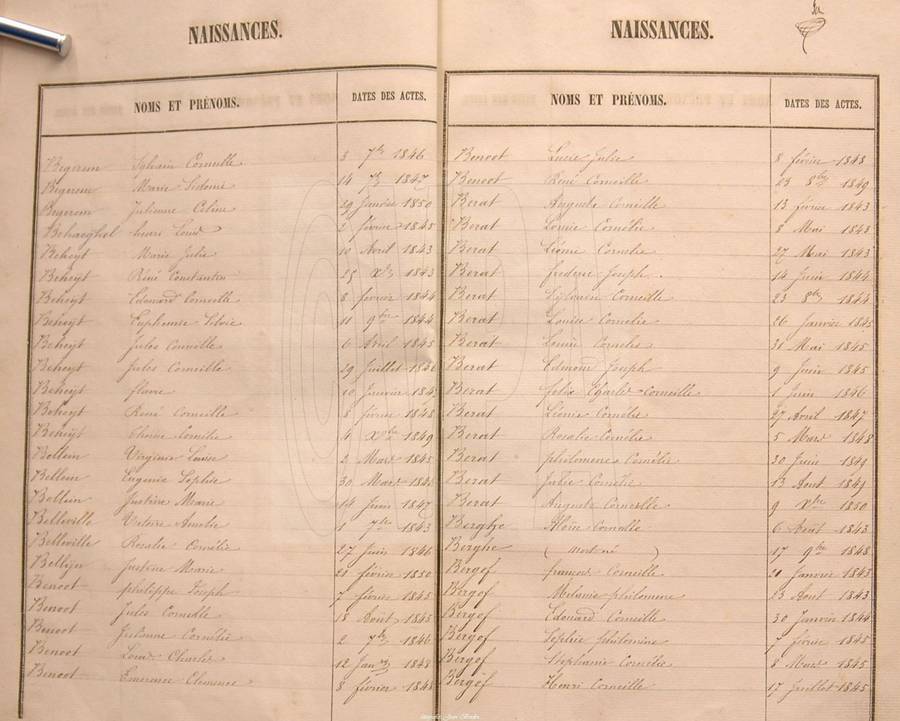 NAISSANCES.
NOMS ET PRÉNOMS. DATES DES ACTES.
Begerem Sylvain Corneille 3 7bre 1846
Begerem Marie Sidonie 14 7bre 1847
Begerem Julienne Celine 29 Janvier 1850
Behaeghel Henri Louis 2 février 1845
Beheyt Marie Julie 10 Avril 1843
Beheyt René Constantin 25 Xbre 1843
Beheyt Edouard Corneille 8 février 1844
Beheyt Euphemie Silvie 11 9bre 1844
Beheyt Jules Corneille 6 Avril 1845
Beheyt Jules Corneille 29 Juillet 1846
Beheyt flavie 10 Janvier 184
Beheyt René Corneille 8 février 1848
Beheyt Cornélie 4 Xbre 1849
Bellein Virginie Louise 2 Mars 1845
Bellein Eugenie Sophie 30 Mars 1846
Bellein Justine Marie 14 Juin 1847
Belleville Victoire Amelie 1 7bre 1843
Belleville Rosalie Cornélie 27 Juin 1846
Bellijn Justine Marie 21 février 1850
Benoot philippe Joseph 7 février 1845
Benoot Jules Corneille 18 Août 1845
Benoot Julienne Cornélie 2 7bre 1846
Benoot Louis Charles 12 Janvier 1848
Benoot Emerance Clemence 8 février 1848
NAISSANCES.
NOMS ET PRÉNOMS. DATES DES ACTES.
Benoot Lucie Julie 8 février 1848
Benoot René Corneille 23 8bre 1849
Berat Auguste Corneille 13 février 1843
Berat Louise Cornélie 8 Mai 1843
Berat Léonie Cornelie 27 Mai 1843
Berat frederic Joseph 14 Juin 1844
Berat Sylvain Corneille 23 8bre 1844
Berat Louise Cornelie 26 Janvier 1845
Berat Louise Cornelie 31 Mai 1845
Berat Edmond Joseph 9 Juin 1845
Berat felix Charles Corneille 1 Juin 1846
Berat Léonie Cornélie 27 Avril 1847
Berat Rosalie Cornélie 5 Mars 1848
Berat philomene Cornélie 30 Juin 1849
Berat Julie Cornélie 13 Août 1849
Berat Auguste Corneille 9 Xbre 1850
Berghe Aloïse Corneille 6 Août 1843
Berghe (mort né) 17 9bre 1848
Bergof françois Corneille 21 Janvier 1843
Bergof Melanie philomene 23 Août 1843
Bergof Edouard Corneille 30 Janvier 1844
Bergof Sophie philomène 7 février 1845
Bergof Stephanie Cornélie 8 Mars 1845
Bergof Henri Corneille 17 Juillet 1845